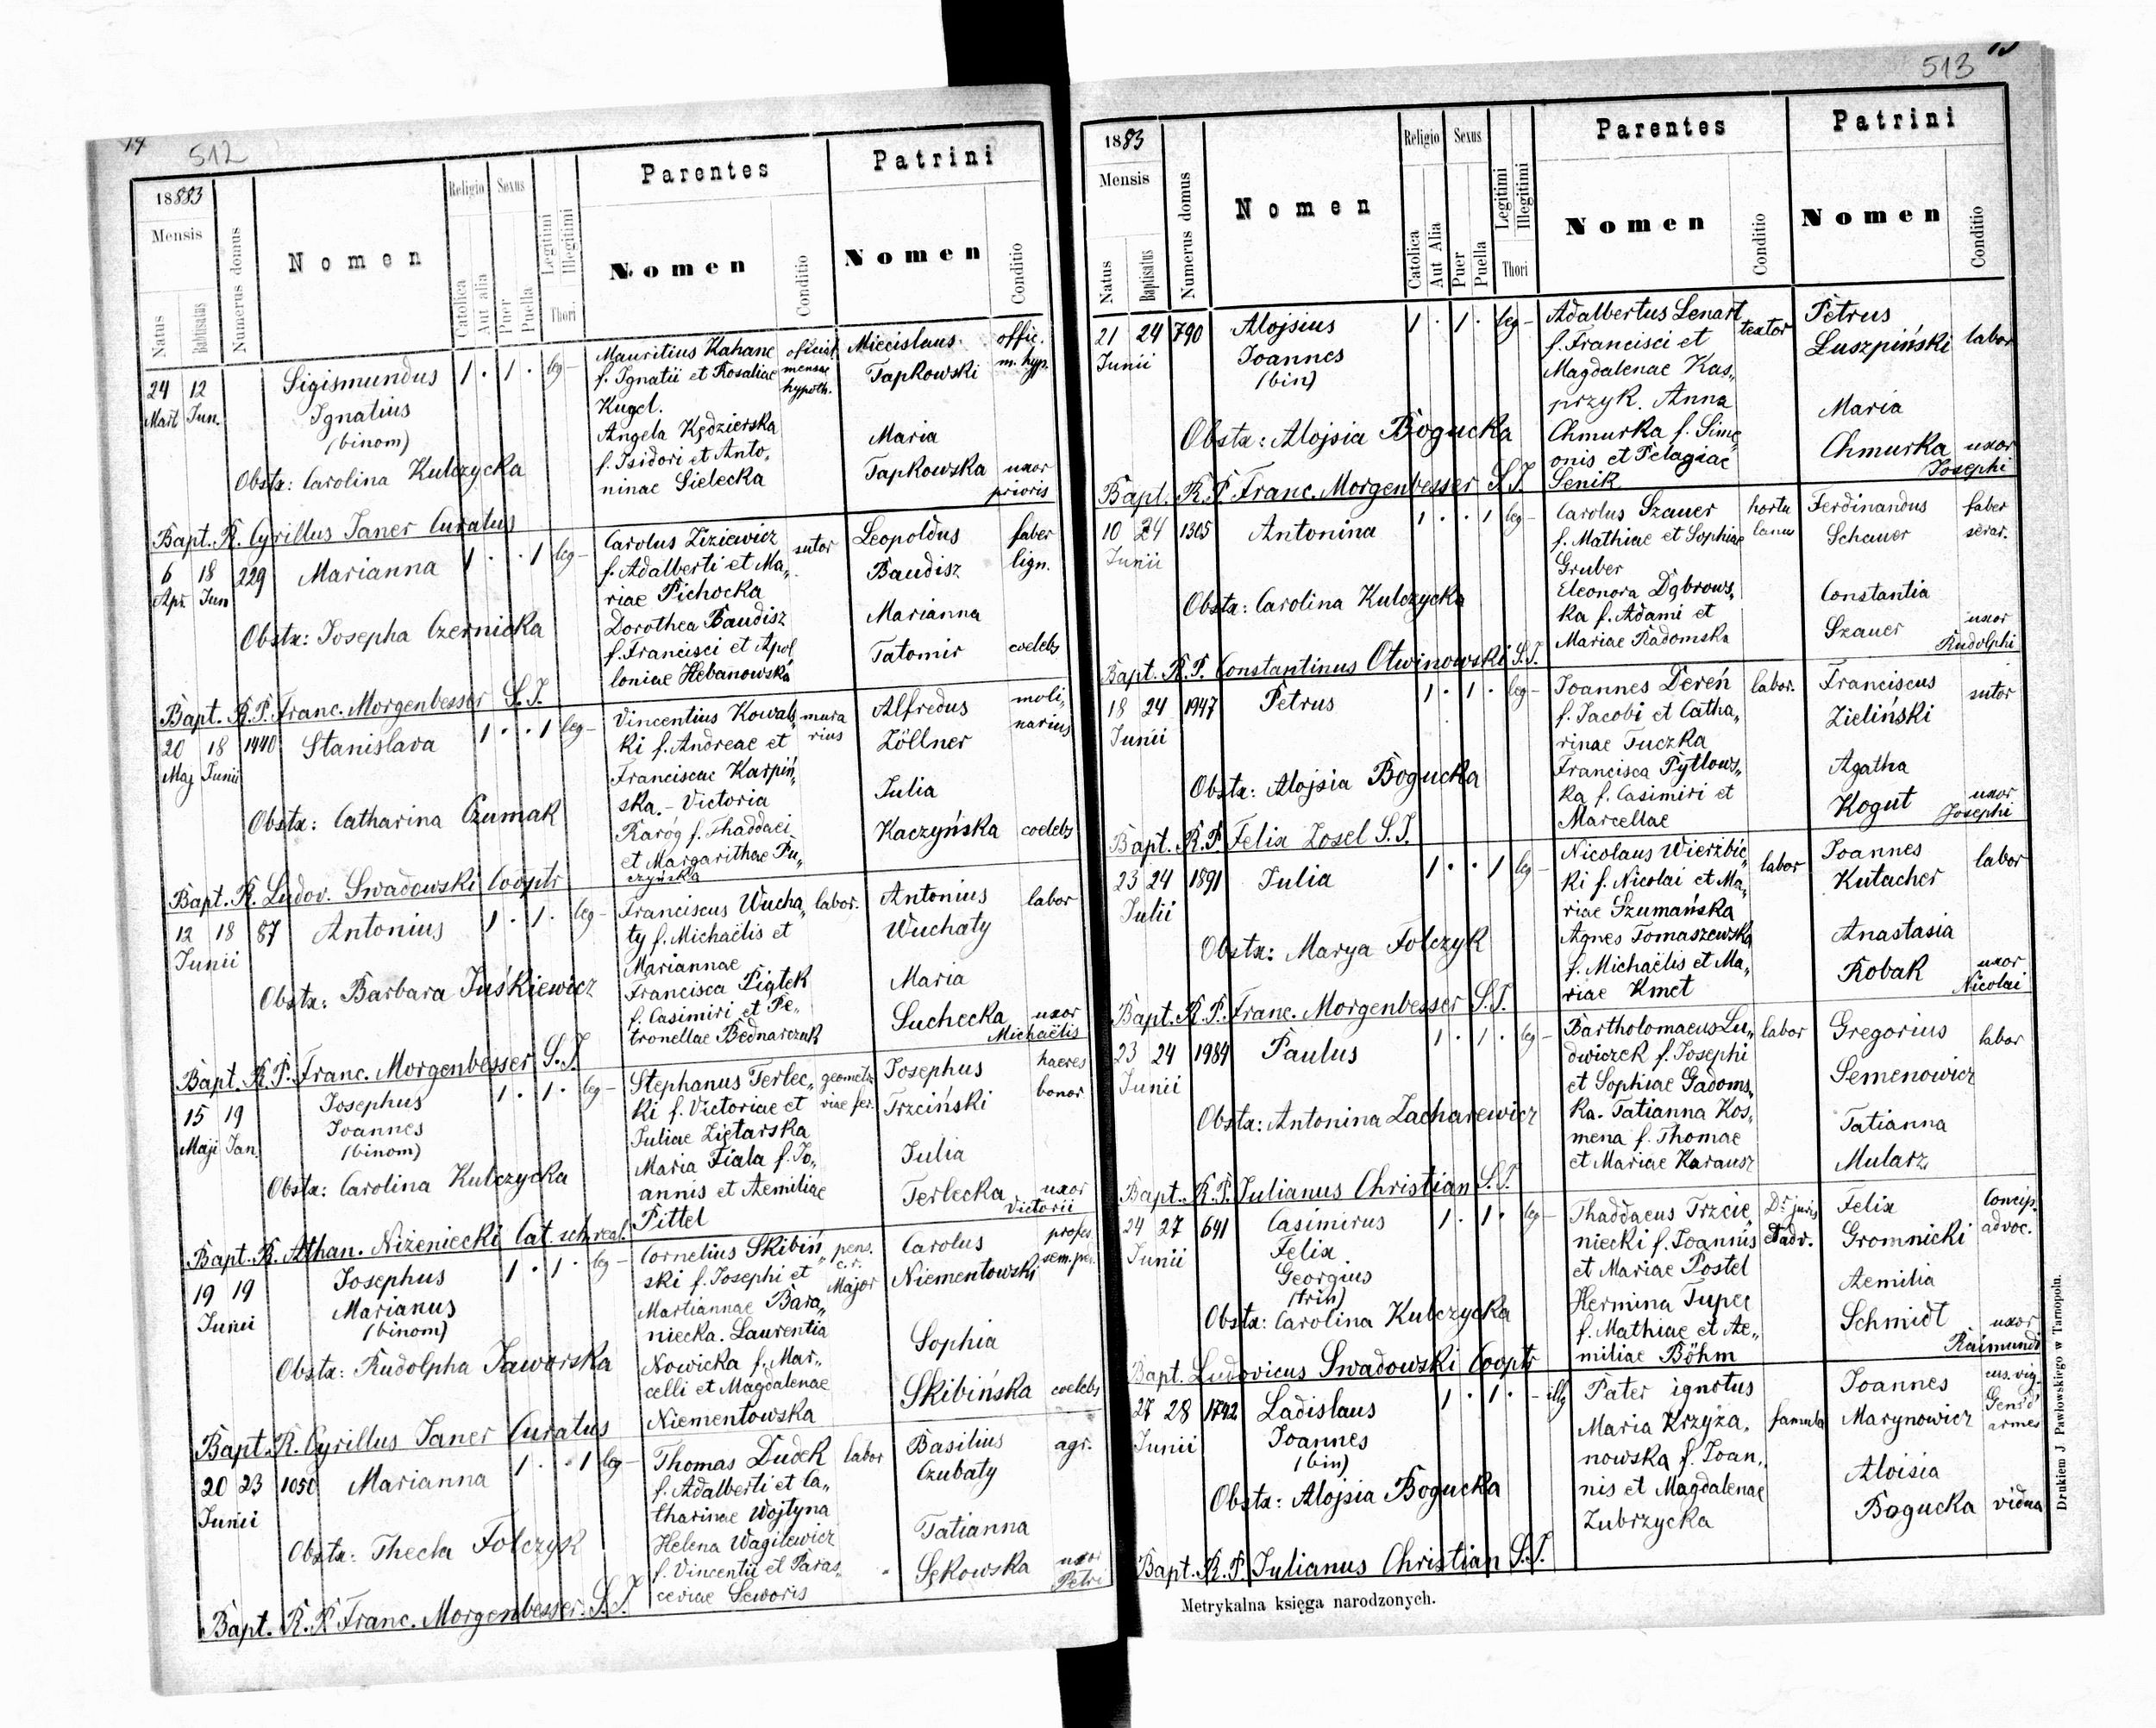 14
512
18883
Mensis
Natus
Babtisatus
Numerus domus
Nomen
Religio
Catolica
Aut alia
Sexus
Puer
Puella
Legitimi
Illegitimi
Thori
Parentes
Nomen
Conditio
Patrini
Nomen
Conditio
24 12 Sigismundus 1 · 1 · leg – Mauritius Kahane oficial Miecislaus offic.
Mart Jun. Ignatius f. Ignatii et Rosaliae mensae Tapkowski m. hyp.
(binom) Kugel. hypoth.
Angela Kędzierska Maria
Obstx: Carolina Kulczycka f. Isidori et Anto„ Tapkowska uxor
ninae Sielecka prioris
Bapt. R. Cyrillus Janer Curatus
6 18 229 Marianna 1 · · 1 leg – Carolus Ziziewicz sutor Leopoldus faber
Apr. Jun f. Adalberti et Ma„ Baudisz lign.
riae Pichocka
Obstx: Josepha Czernicka Dorothea Baudisz Marianna
f. Francisci et Apol Tatomir coelebs
loniae Hebanowska
Bapt. R.P. Franc. Morgenbesser S.J.
20 18 1440 Stanislava 1 · · 1 leg – Vincentius Kowals mura Alfredus moli„
Maj Junii ki f. Andreae et rius Zöllner narius
Franciscae Karpiń
ska. – Victoria Julia
Obstx: Catharina Czumak Raróg f. Thaddaei Kaczyńska coelebs
et Margarithae Pu„
czyńska
Bapt. R. Ludov. Swadowski Cooptr
12 18 87 Antonius 1 · 1 · leg – Franciscus Wucha„ labor. Antonius labor
Junii ty f. Michaëlis et Wuchaty
Mariannae
Obstx: Barbara Juśkiewicz Francisca Piątek Maria
f. Casimiri et Pe„ Suchecka uxor
tronellae Bednarczuk Michaëlis
Bapt. R.P. Franc. Morgenbesser S.J.
15 19 Josephus 1 · 1 · leg – Stephanus Terlec„ geomet Josephus haeres
Maji Jan. Joannes ki f. Victoriae et riae fer. Trzciński bonor
(binom) Juliae Ziętarska
Maria Fiala f. Jo„ Julia
Obstx: Carolina Kulczycka annis et Aemiliae Terlecka uxor
Pittel Victorii
Bapt. R. Athan. Niżeniecki Cat. sch. real.
19 19 Josephus 1 · 1 · leg – Cornelius Skibiń„ pens. Carolus profes
Junii Marianus ski f. Josephi et c.r. Niementowski sem. pa.
(binom) Martiannae Bara„ Major
niecka. Laurentia
Obstx: Rudolpha Jaworska Nowicka f. Mar„ Sophia
celli et Magdalenae Skibińska coelebs
Niementowska
Bapt. R. Cyrillus Janer Curatus
20 23 1050 Marianna 1 · · 1 leg – Thomas Dudek labor Basilius agr.
Junii f. Adalberti et Ca„ Czubaty
tharinae Wojtyna
Obstx: Thecla Folczyk Helena Wagilewicz Tatianna
f. Vincentii et Paras„ Sękowska uxor
ceviae Seworis Petri
Bapt. R.P. Franc. Morgenbesser. S.J.
513
1883
Mensis
Natus
Baptisatus
Numerus domus
Nomen
Religio
Catolica
Aut Alia
Sexus
Puer
Puella
Legitimi
Illegitimi
Thori
Parentes
Nomen
Conditio
Patrini
Nomen
Conditio
21 24 790 Alojsius 1 · 1 · leg – Adalbertus Lenart textor Petrus labor
Junii Joannes f. Francisci et Luszpiński
(bin) Magdalenae Kas„
przyk. Anna Maria
Obstx: Alojsia Bogucka Chmurka f. Sime„ Chmurka uxor
onis et Pelagiae Josephi
Senik
Bapt. R.P. Franc. Morgenbesser S.J.
10 24 1305 Antonina 1 · · 1 leg – Carolus Szauer hortu Ferdinandus faber
Junii f. Mathiae et Sophiae lanus Schauer serar.
Gruber
Obstx: Carolina Kulczycka Eleonora Dąbrows„ Constantia
ka f. Adami et Szauer uxor
Mariae Radomska Rudolphi
Bapt. R.P. Constantinus Otwinowski S.J.
18 24 1947 Petrus 1 · 1 · leg – Joannes Dereń labor. Franciscus sutor
Junii f. Jacobi et Catha„ Zieliński
rinae Tuczka
Obstx: Alojsia Bogucka Francisca Pytlows„ Agatha
ka f. Casimiri et Kogut uxor
Marcellae Josephi
Bapt. R.P. Felix Zosel S.J.
23 24 1891 Julia 1 · · 1 leg – Nicolaus Wierzbic„ labor Joannes labor
Julii ki f. Nicolai et Ma„ Kutacher
riae Szumańska
Obstx: Marya Folczyk Agnes Tomaszewska Anastasia
f. Michaëlis et Ma„ Robak uxor
riae Kmet Nicolai
Bapt. R.P. Franc. Morgenbesser S.J.
23 24 1984 Paulus 1 · 1 · leg – Bartholomaeus Lu„ labor Gregorius labor
Junii dwiczek f. Josephi Semenowicz
et Sophiae Gadoms„
Obstx: Antonina Zacharewicz ka. Tatianna Kos„ Tatianna
mena f. Thomae Mularz
et Mariae Karausz
Bapt. R.P. Julianus Christian S.J.
24 27 641 Casimirus 1 · 1 · leg – Thaddaeus Trzcie„ Dr juris Felix Concip.
Junii Felix niecki f. Joannis et adv. Gromnicki advoc.
Georgius et Mariae Postel Aemilia
(trin) Hermina Tupec
Obstx: Carolina Kulczycka f. Mathiae et Ae„ Schmidt uxor
miliae Böhm Raimundi
Bapt. Ludovicus Swadowski Cooptr
27 28 1742 Ladislaus 1 · 1 · – illg Pater ignotus Joannes cus. vig.
Junii Joannes Maria Krzyża„ famula Marynowicz Gens d'
(bin) nowska f. Joan„ armes
Obstx: Alojsia Bogucka nis et Magdalenae Aloisia
Zubrzycka Bogucka vidua
Bapt. R.P. Julianus Christian S.J.
Metrykalna księga narodzonych.
Drukiem J. Pawłowskiego w Tarnopolu.